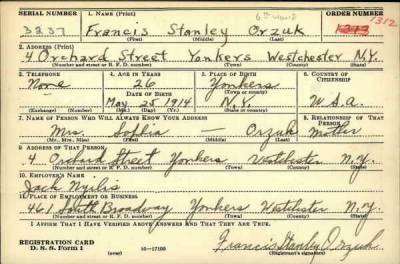 SERIAL NUMBER 1. NAME (Print) ORDER NUMBER
3237 Francis Stanley Orzuk 1312
(First) (Middle) (Last)
2. ADDRESS (Print)
4 Orchard Street Yonkers Westchester N.Y.
(Number and street or R. F. D. number) (Town) (County) (State)
3. TELEPHONE 4. AGE IN YEARS 5. PLACE OF BIRTH 6. COUNTRY OF CITIZENSHIP
None 26 Yonkers
DATE OF BIRTH (Town or county)
May 25 1914 N.Y. U.S.A.
(Exchange) (Number) (Mo.) (Day) (Yr.) (State or country)
7. NAME OF PERSON WHO WILL ALWAYS KNOW YOUR ADDRESS 8. RELATIONSHIP OF THAT PERSON
Mrs. Sophia — Orzuk Mother
(Mr., Mrs., Miss) (First) (Middle) (Last)
9. ADDRESS OF THAT PERSON
4 Orchard Street Yonkers Westchester N.Y.
(Number and street or R. F. D. number) (Town) (County) (State)
10. EMPLOYER'S NAME
Jack
11. PLACE OF EMPLOYMENT OR BUSINESS
461 South Broadway Yonkers Westchester N.Y.
(Number and street or R. F. D. number) (Town) (County) (State)
I AFFIRM THAT I HAVE VERIFIED ABOVE ANSWERS AND THAT THEY ARE TRUE.
REGISTRATION CARD
D. S. S. Form 1 (over) 16—17105 Francis Stanley Orzuk
(Registrant's signature)